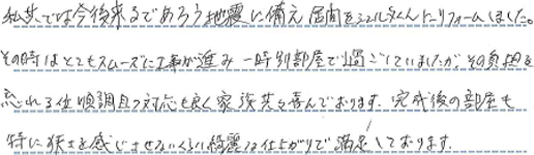 私共では今後来るであろう地震に備え居間をシェルターくんにリフォームしました。
その時はとてもスムーズに工事が進み一時別部屋で過ごしていましたが、その負担を
忘れる位順調且つ対応も良く家族共々喜んでおります。完成後の部屋も
特に狭さを感じさせないくらい綺麗な仕上がりで満足しております。